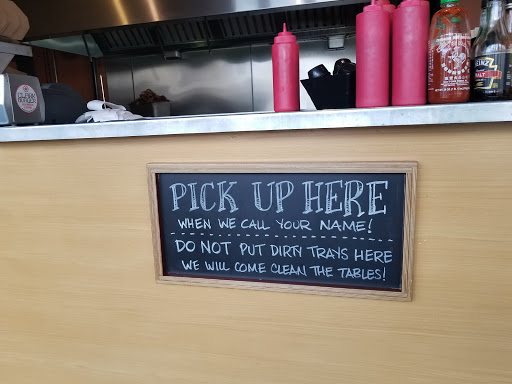 PICK UP HERE
WHEN WE CALL YOUR NAME!
DO NOT PUT DIRTY TRAYS HERE
WE WILL COME CLEAN THE TABLES!
HEINZ
MALT